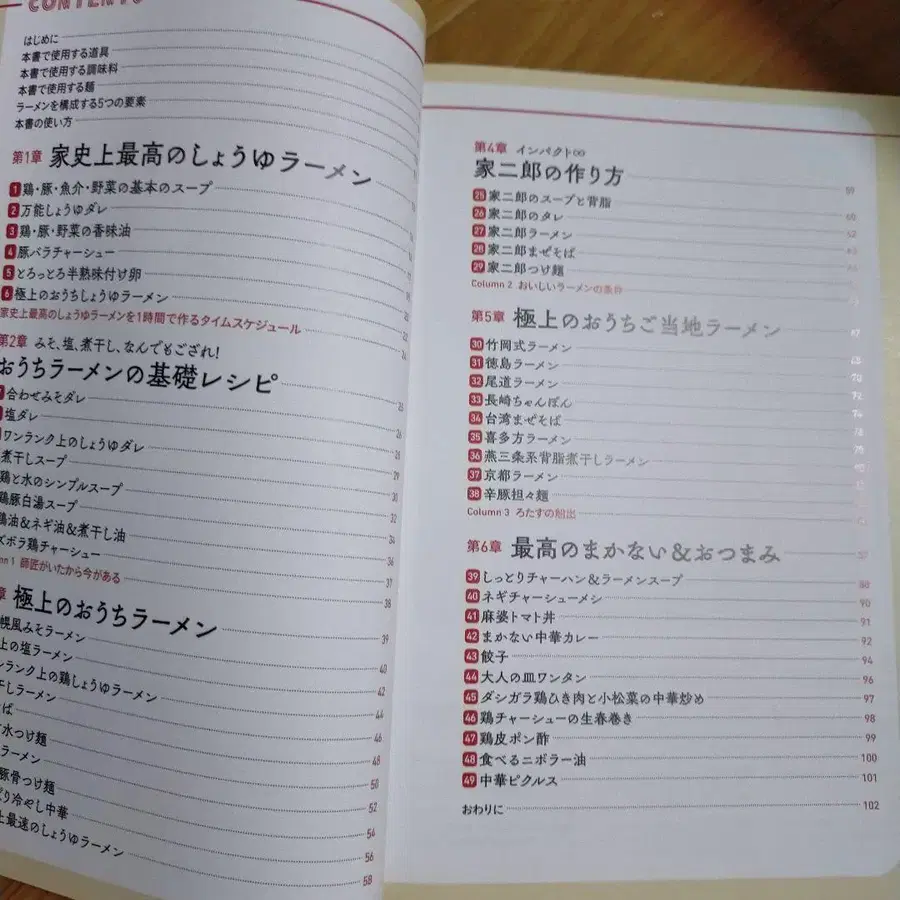 CONTENTS
はじめに
本書で使用する道具
本書で使用する調味料
本書で使用する麺
ラーメンを構成する5つの要素
本書の使い方
第1章 家史上最高のしょうゆラーメン
1 鶏・豚・魚介・野菜の基本のスープ
2 万能しょうゆダレ
3 鶏・豚・野菜の香味油
4 豚バラチャーシュー
5 とろっとろ半熟味付け卵
6 極上のおうちしょうゆラーメン
家史上最高のしょうゆラーメンを1時間で作るタイムスケジュール
第2章 みそ、塩、煮干し、なんでもござれ!
おうちラーメンの基礎レシピ 25
合わせみそダレ 26
塩ダレ 28
ワンランク上のしょうゆダレ 29
煮干しスープ 30
鶏と水のシンプルスープ 32
鶏豚白湯スープ 34
鶏油&ネギ油&煮干し油 36
ズボラ鶏チャーシュー 37
mn 1 師匠がいたから今がある 38
章 極上のおうちラーメン 39
幌風みそラーメン 40
上の塩ラーメン 42
ンランク上の鶏しょうゆラーメン 44
干しラーメン 46
そば 48
水つけ麺 50
ラーメン 52
豚骨つけ麺 54
り冷やし中華 56
上最速のしょうゆラーメン 58
第4章 インパクト∞
家二郎の作り方 59
25 家二郎のスープと背脂 60
26 家二郎のタレ 62
27 家二郎ラーメン
28 家二郎まぜそば
29 家二郎つけ麺
Column 2 おいしいラーメンの条件
第5章 極上のおうちご当地ラーメン
30 竹岡式ラーメン
31 徳島ラーメン
32 尾道ラーメン
33 長崎ちゃんぽん
34 台湾まぜそば
35 喜多方ラーメン
36 燕三条系背脂煮干しラーメン
37 京都ラーメン
38 辛豚担々麺
Column 3 ろたすの船出
第6章 最高のまかない&おつまみ
39 しっとりチャーハン&ラーメンスープ 88
40 ネギチャーシューメシ 90
41 麻婆トマト丼 91
42 まかない中華カレー 92
43 餃子 94
44 大人の皿ワンタン 96
45 ダシガラ鶏ひき肉と小松菜の中華炒め 97
46 鶏チャーシューの生春巻き 98
47 鶏皮ポン酢 99
48 食べるニボラー油 100
49 中華ピクルス 101
おわりに 102